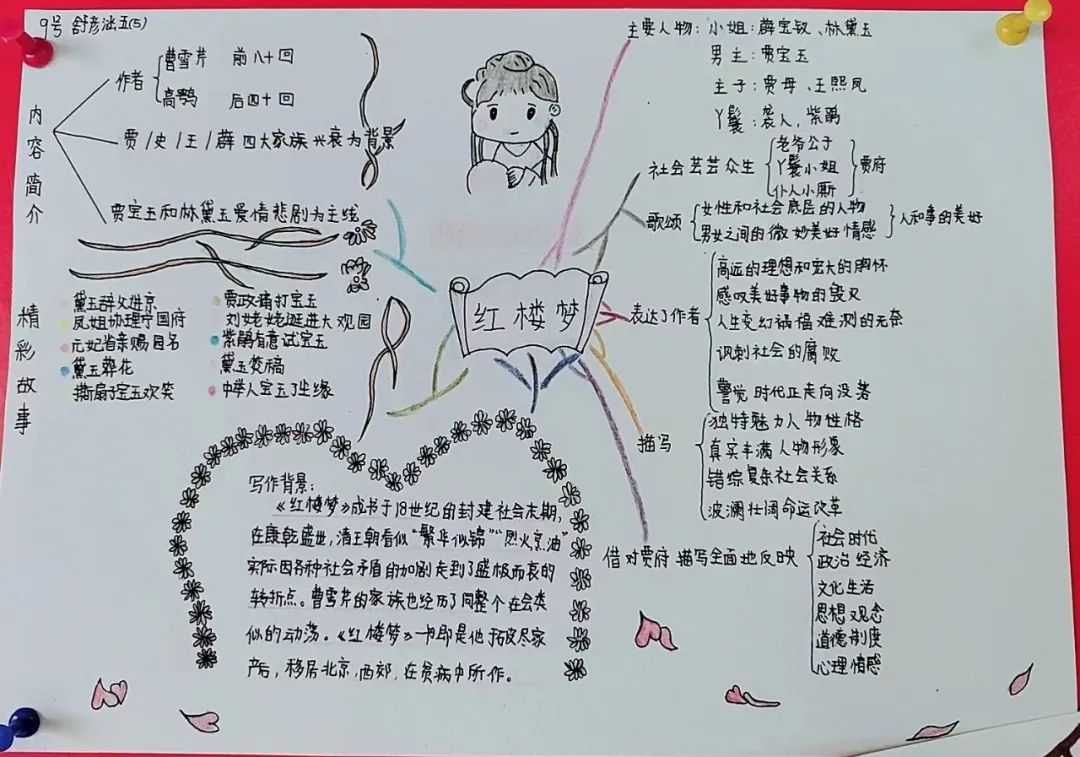 9号 舒彦涵五(5)
内容简介
作者
曹雪芹 前八十回
高鹗 后四十回
贾/史/王/薛四大家族兴衰为背景
贾宝玉和林黛玉爱情悲剧为主线
精彩故事
黛玉辞父进京
凤姐协理宁国府
元妃省亲赐园名
黛玉葬花
撕扇子宝玉欢笑
贾政痛打宝玉
刘姥姥逛进大观园
紫鹃有意试宝玉
黛玉焚稿
中举人宝玉了尘缘
红楼梦
主要人物：小姐：薛宝钗、林黛玉
男主：贾宝玉
主子：贾母、王熙凤
丫鬟：袭人、紫鹃
社会芸芸众生
老爷公子
丫鬟小姐
仆人小厮
贾府
歌颂
女性和社会底层的人物
男女之间的微妙美好情感
人和事的美好
表达了作者
高远的理想和宏大的胸怀
感叹美好事物的毁灭
人生变幻祸福难测的无奈
讽刺社会的腐败
警觉时代正走向没落
描写
独特魅力人物性格
真实丰满人物形象
错综复杂社会关系
波澜壮阔命运改革
借对贾府描写全面地反映
社会时代
政治经济
文化生活
思想观念
道德制度
心理情感
写作背景：
《红楼梦》成书于18世纪的封建社会末期，
在康乾盛世，清王朝看似“繁华似锦”“烈火烹油”
实际因各种社会矛盾的加剧走到了盛极而衰的
转折点。曹雪芹的家族也经历了同整个社会类
似的动荡。《红楼梦》一书即是他于破尽家
产后，移居北京，西郊，在贫病中所作。